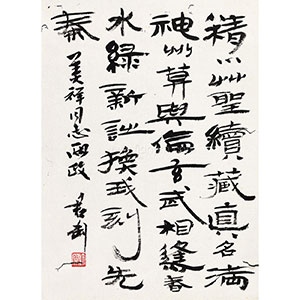 精心艸聖續藏真名滿
神州莫與倫玄武相逢春
水綠新詩換我刻先
秦
美祥同志兩政 君匋